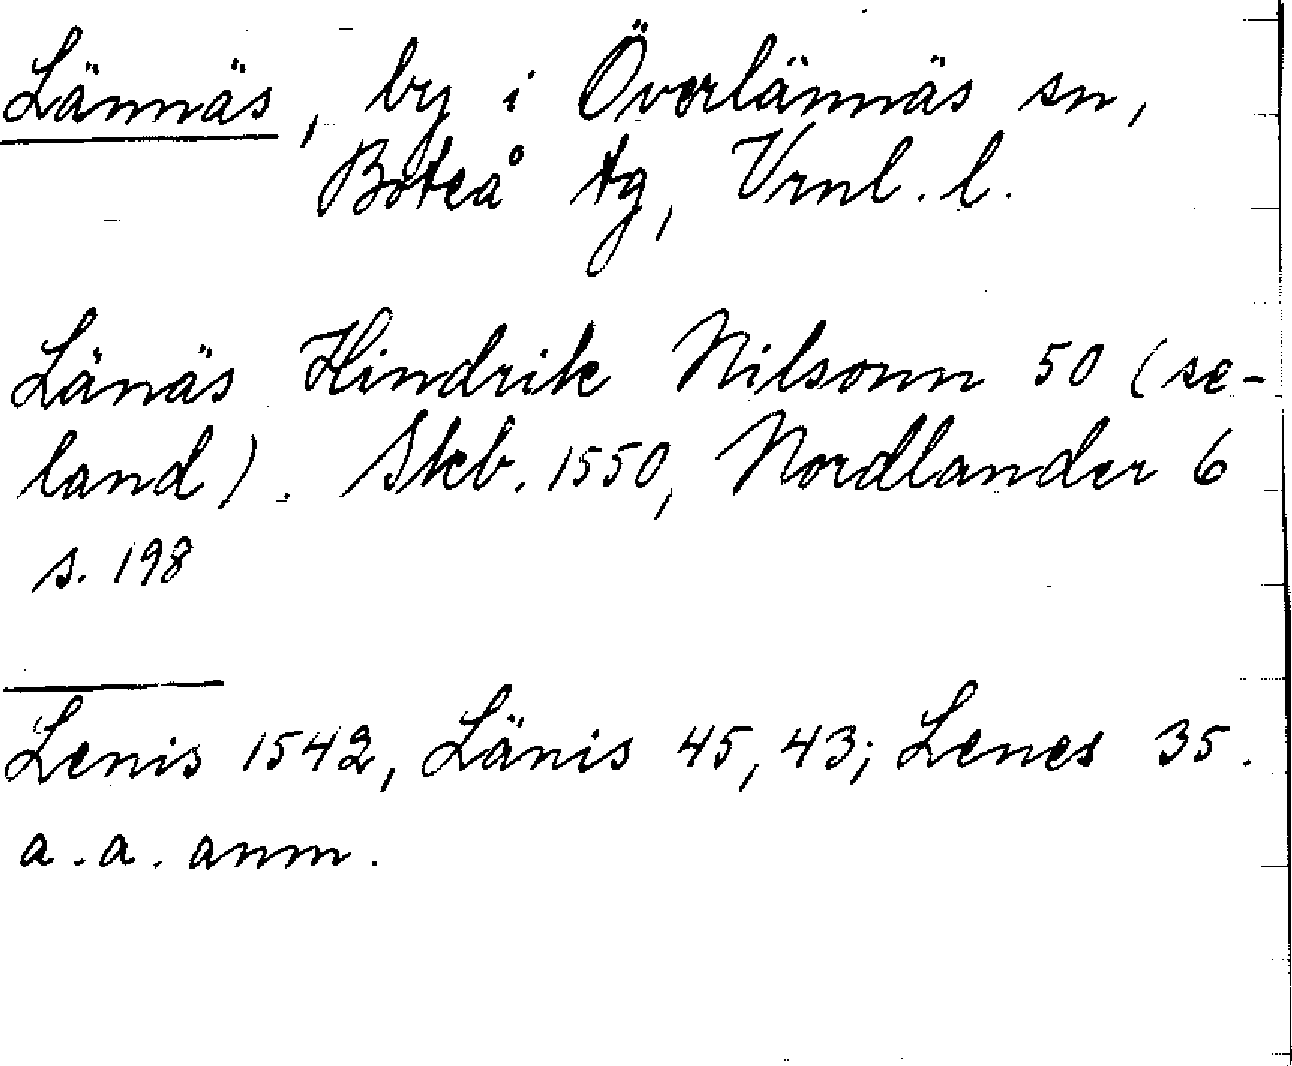 Lännäs, by i Överlännäs sn,
Boteå tg, Vrnl. l.
Länäs Hindrik Nilsonn 50 (se-
land). Skb. 1550, Nordlander 6
s. 198
Lenis 1542, Länis 45, 43; Lenes 35.
a. a. anm.